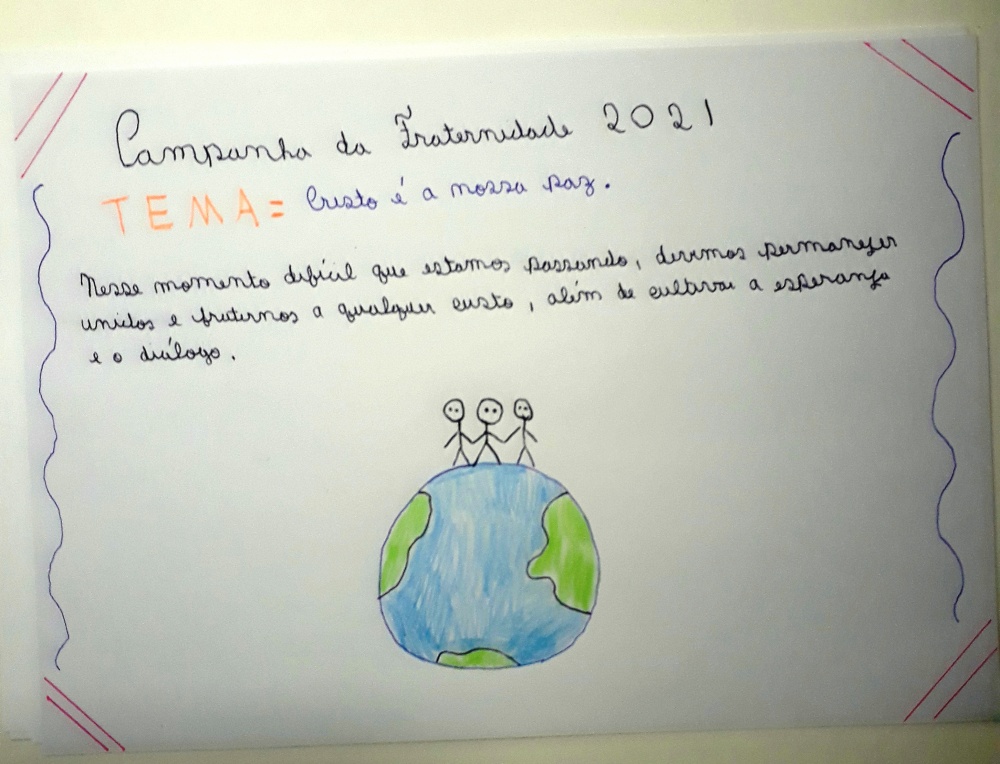 Campanha da Fraternidade 2021
TEMA= Cristo é a nossa paz.
Nesse momento difícil que estamos passando, devemos permanecer
unidos e fraternos a qualquer custo, além de cultivar a esperança
e o diálogo.